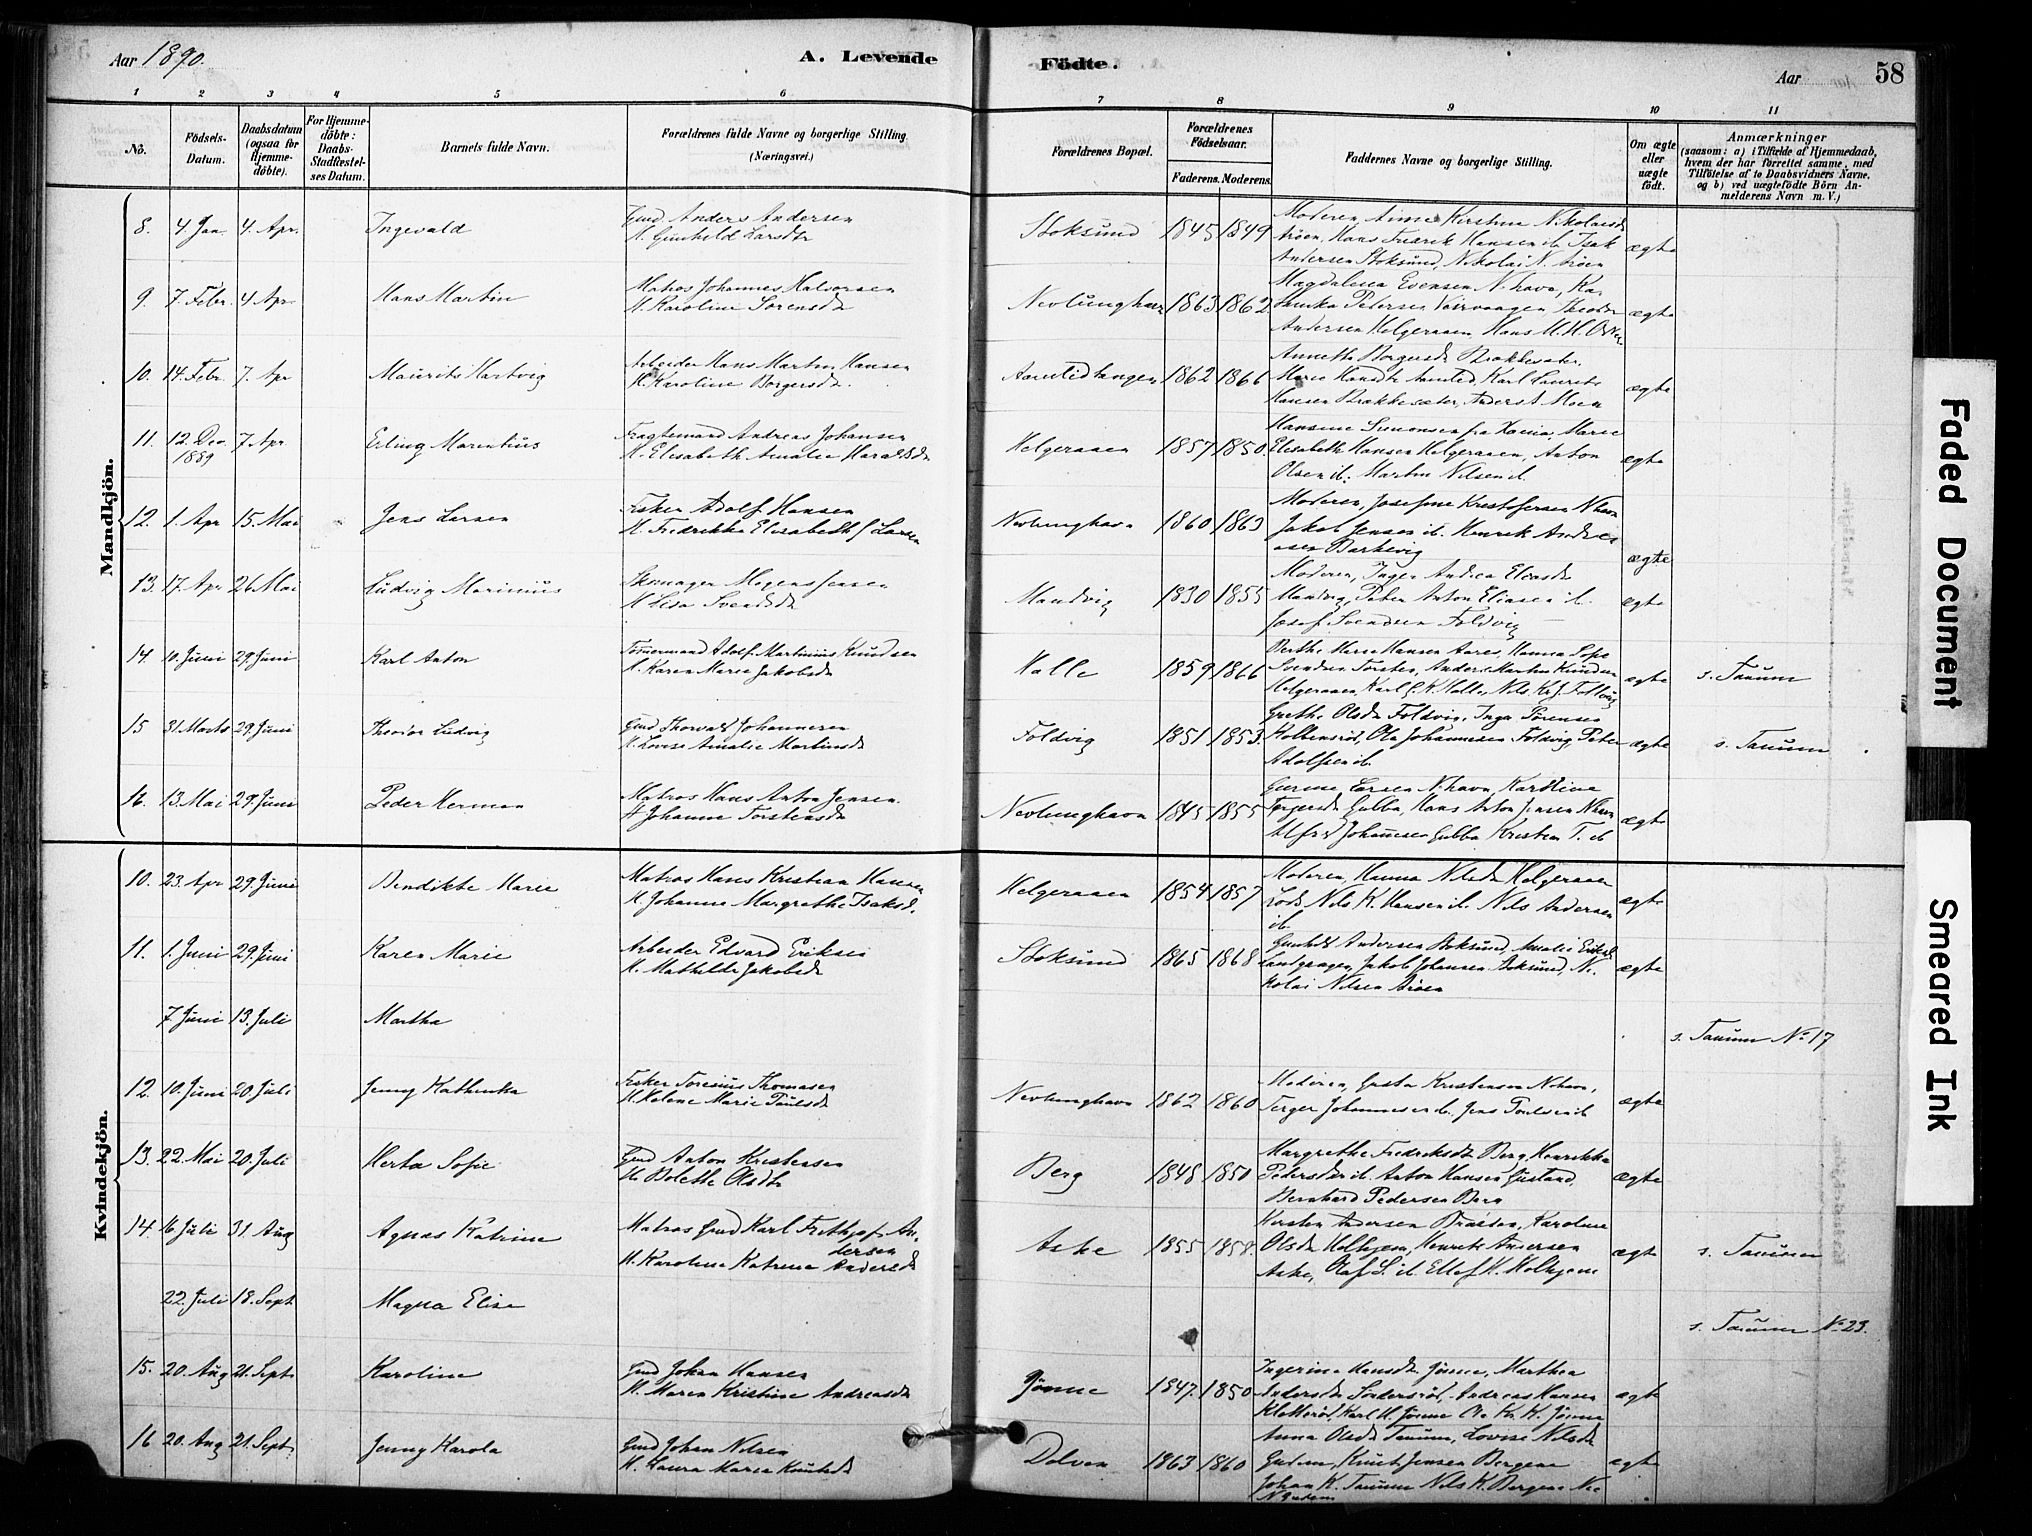 Aar 1890.
A. Levende
Födte.
Aar
58
1 2 3 4 5 6 7 8 9 10 11
No.
Födsels-Datum.
Daabsdatum (ogsaa for Hjemme-döbte).
For Hjemme-döbte: Daabs-Stadfæstel-ses Datum.
Barnets fulde Navn.
Forældrenes fulde Navne og borgerlige Stilling.
(Næringsvei.)
Forældrenes Bopæl.
Forældrenes Födselsaar.
Faderens. Moderens.
Faddernes Navne og borgerlige Stilling.
Om ægte eller uægte födt.
Anmærkninger
(saasom: a) i Tilfælde af Hjemmedaab,
hvem der har forrettet samme, med
Tilföielse af to Daabsvidners Navne,
og b) ved uægtefödte Börn An-
melderens Navn m. V.)
Mandkjön.
8. 4. Jan. 4. Apr. Ingevald
Gmd Anders Andersen
H. Gunhild Larsdtr
Stoksund 1845 1849
Moderen,
Hans Fredrik Hansen ib. Isak
Andersen Stoksund, Nikolai N. Aröen
ægte
9. 7. Febr. 4 Apr Hans Martin
Matros Johannes Halvorsen
H. Karoline Sörensdtr
Nevlunghavn 1863 1862
Magdalena Evensen N.havn, Ka-
Pedersen
Andersen Helgeraaen Hans M. H.
ægte
10. 14. Febr. 7. Apr Maurits Hartvig
Arbeider Hans Martin Hansen
H. Karoline Borgersdtr.
1862 1866
Annette Borgersdtr
Marie Hansdtr Karl Laurits
Hansen Anders A. Moen
ægte
11. 12. Dec. 1889 7. Apr Erling Marentius
Fragtemand Andreas Johansen
H. Elisabeth Amalie Haraldsdtr
Helgeraaen 1857 1850.
Hansine Simonsen fra Marie
Elisabeth Hansen Helgeraaen, Anton
Olsen ib. Martin Nilsen ib.
ægte
12. 1. Apr 15. Mai Jens Larsen
Fisker Adolf Hansen
H. Fredrikke Elisabeth f Larsen
Nevlunghavn 1860 1863
Moderen, Josefine Kristofersen N.havn
Jakob Jensen ib. Henrik Andre-
asen Barkevig
ægte
13. 17. Apr 26. Mai Ludvig Marinius
Skomager Mogens Jensen
H Lisa Svendsdtr
Mandvig 1830 1855
Moderen, Inger Andrea Eliasdtr
Mandvig, Peter Anton Eliasen ib.
Josef Svendsen Foldvig
ægte
14. 10. Juni 29. Juni Karl Anton
Tömermand Adolf Martinius Knudsen
H. Karen Marie Jakobsdtr
Halle 1859 1866
Berthe Marie Hansen Hanna Sofie
Svendsen Anders Martin Knudsen
Helgeraaen, Karl Halle, Nils Kr.
ægte
s. Tanum
15 31. Marts 29. Juni Theodor Ludvig
Gmd Thorvald Johannesen
H. Lovise Amalie Martinsdtr
Foldvig 1851 1853.
Grethe Olsdtr Foldvig, Inga Sörensen
Ole Johannesen Foldvig, Peter
Adolfsen ib.
ægte
s. Tanum
16. 13. Mai 29. Juni Peder Herman
Matros Hans Anton Jensen.
H Johanne Torstensdtr
Nevlunghavn 1845 1855
Larsen N.havn, Karoline
Gubba, Hans Anton Jensen N.havn
Alfred Johannesen Gubba Kristian T. ib
ægte
Kvindekjön.
10. 23. Apr 29. Juni Bendikte Marie
Matros Hans Kristian Hansen
H. Johanne Margrethe Isaksd.
Helgeraaen 1854 1857
Moderen, Hanna Nilsdtr Helgeraaen
Lods Nils K. Hansen ib. Nils Andersen
ib
ægte
11. 1. Juni 29. Juni Karen Marie
Arbeider Edvard Eriksen
H. Mathilde Jakobsdtr
Stoksund 1865 1868
Gunhild Andersen Stoksund, Amalie Eriksdtr
Jakob Johansen Stoksund, Ni-
kolai Nilsen Aröen
ægte
7. Juni 13. Juli Martha
s. Tanum No. 17
12. 10. Juni 20. Juli Jenny Kathinka
Fisker Toresius Thomasen
H. Helene Marie Paulsdtr
Nevlunghavn 1862 1860
Moderen, Gusta Kristensen N.havn,
Terger Johannesen ib. Jens Poulsen ib
ægte
13. 22. Mai 20. Juli Herta Sofie
Gmd Anton Kristensen
H. Bolethe Olsdtr
Berg 1848 1850
Margrethe Fredriksdtr Berg, Henrikke
Pedersdtr ib. Anton Hansen
Bernhard Pedersen Berg
ægte
14. 16. Juli 31. Aug Agnes Katrine
Matros Gmd Karl Frithjof An-
dersen
H. Karoline Katrine Andersdtr
Aske 1855 1858.
Kirsten Andersen Karoline
Olsdtr Holhjem, Henrik Andersen
Aske, Olaf S. ib. Ellef H. Holhjem
ægte
s. Tanum
22. Juli 18. Sept. Magna Elise
s. Tanum No. 23.
15. 20. Aug 21. Sept. Karoline
Gmd Johan Hansen
H. Maren Kristine Andreasdtr
Jönne 1847. 1850
Ingerine Hansdtr Jönne, Marthea
Andersdtr Andreas Hansen
Karl H. Jönne Ole Kr. K. Jönne
ægte
16 20. Aug 21. Sept. Jenny Karola
Gmd Johan Nilsen
H. Laura Maria Knutsdtr
Dolven 1863 1860
Anna Olsdtr Tanum, Lovise Nilsdtr
Knut Jensen Bergene
Johan K. Tanum Nils K. Bergene
ægte
Faded Document
Smeared Ink